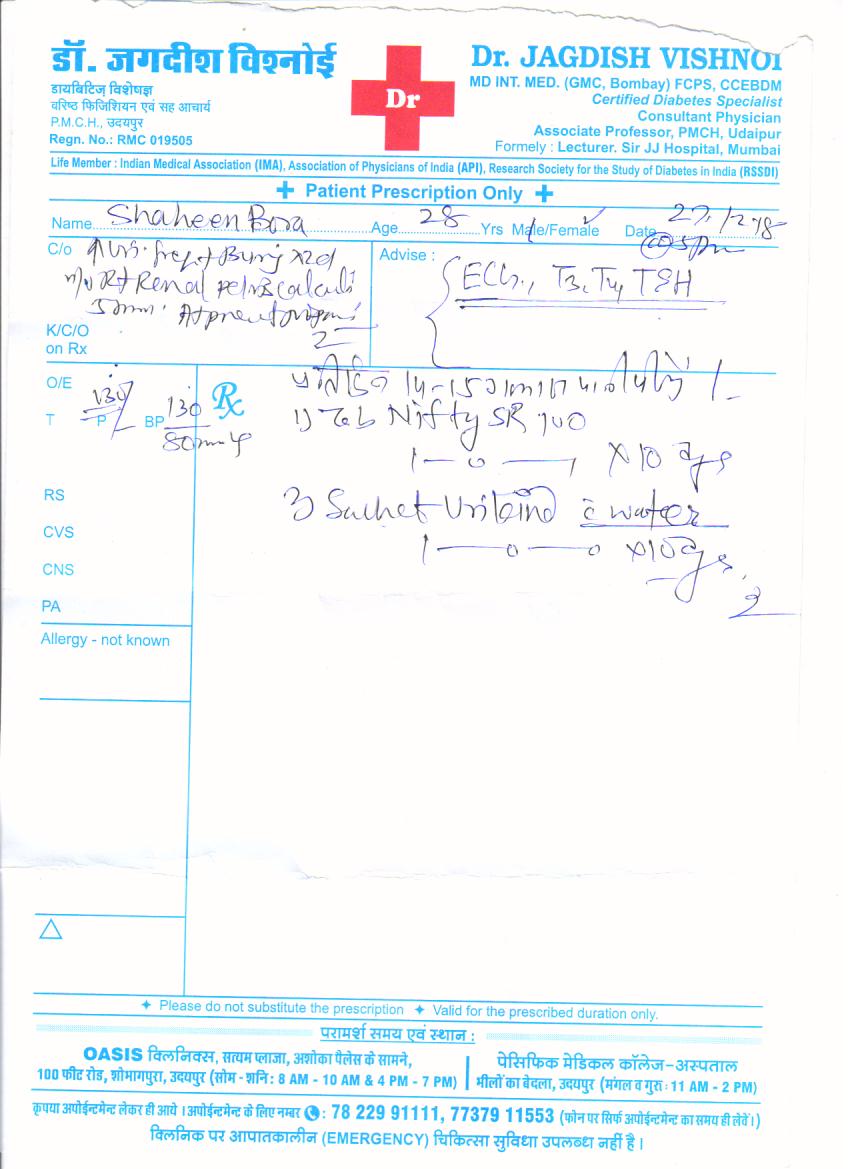 डॉ. जगदीश विश्नोई
डायबिटिज़ विशेषज्ञ
वरिष्ठ फिजिशियन एवं सह आचार्य
P.M.C.H., उदयपुर
Regn. No.: RMC 019505
Dr
Dr. JAGDISH VISHNOI
MD INT. MED. (GMC, Bombay) FCPS, CCEBDM
Certified Diabetes Specialist
Consultant Physician
Associate Professor, PMCH, Udaipur
Formely : Lecturer. Sir JJ Hospital, Mumbai
Life Member : Indian Medical Association (IMA), Association of Physicians of India (API), Research Society for the Study of Diabetes in India (RSSDI)
+ Patient Prescription Only +
Name Shaheen Bora Age 28 Yrs Male/Female Date
@ 5pm
C/o
Rt Renal calculi
5mm.
K/C/O
on Rx
Advise :
ECG., T3, T4, TSH
O/E
T P BP 130
80
Rx
प्रतिदिन 14-15 पानी पियें
1) Tab Nifty SR 100
1 — 0 — 1 x10 dys
2) Sachet c water
1 — 0 — 0 x10 dys
RS
CVS
CNS
PA
Allergy - not known
△
✦ Please do not substitute the prescription ✦ Valid for the prescribed duration only.
परामर्श समय एवं स्थान :
OASIS क्लिनिक्स, सत्यम प्लाजा, अशोका पैलेस के सामने,
100 फीट रोड, शोभागपुरा, उदयपुर (सोम - शनि: 8 AM - 10 AM & 4 PM - 7 PM)
पेसिफिक मेडिकल कॉलेज-अस्पताल
भीलों का बेदला, उदयपुर (मंगल व गुरु : 11 AM - 2 PM)
कृपया अपोईन्टमेन्ट लेकर ही आये । अपोईन्टमेन्ट के लिए नम्बर : 78 229 91111, 77379 11553 (फोन पर सिर्फ अपोईन्टमेन्ट का समय ही लेवें।)
क्लिनिक पर आपातकालीन (EMERGENCY) चिकित्सा सुविधा उपलब्ध नहीं है।